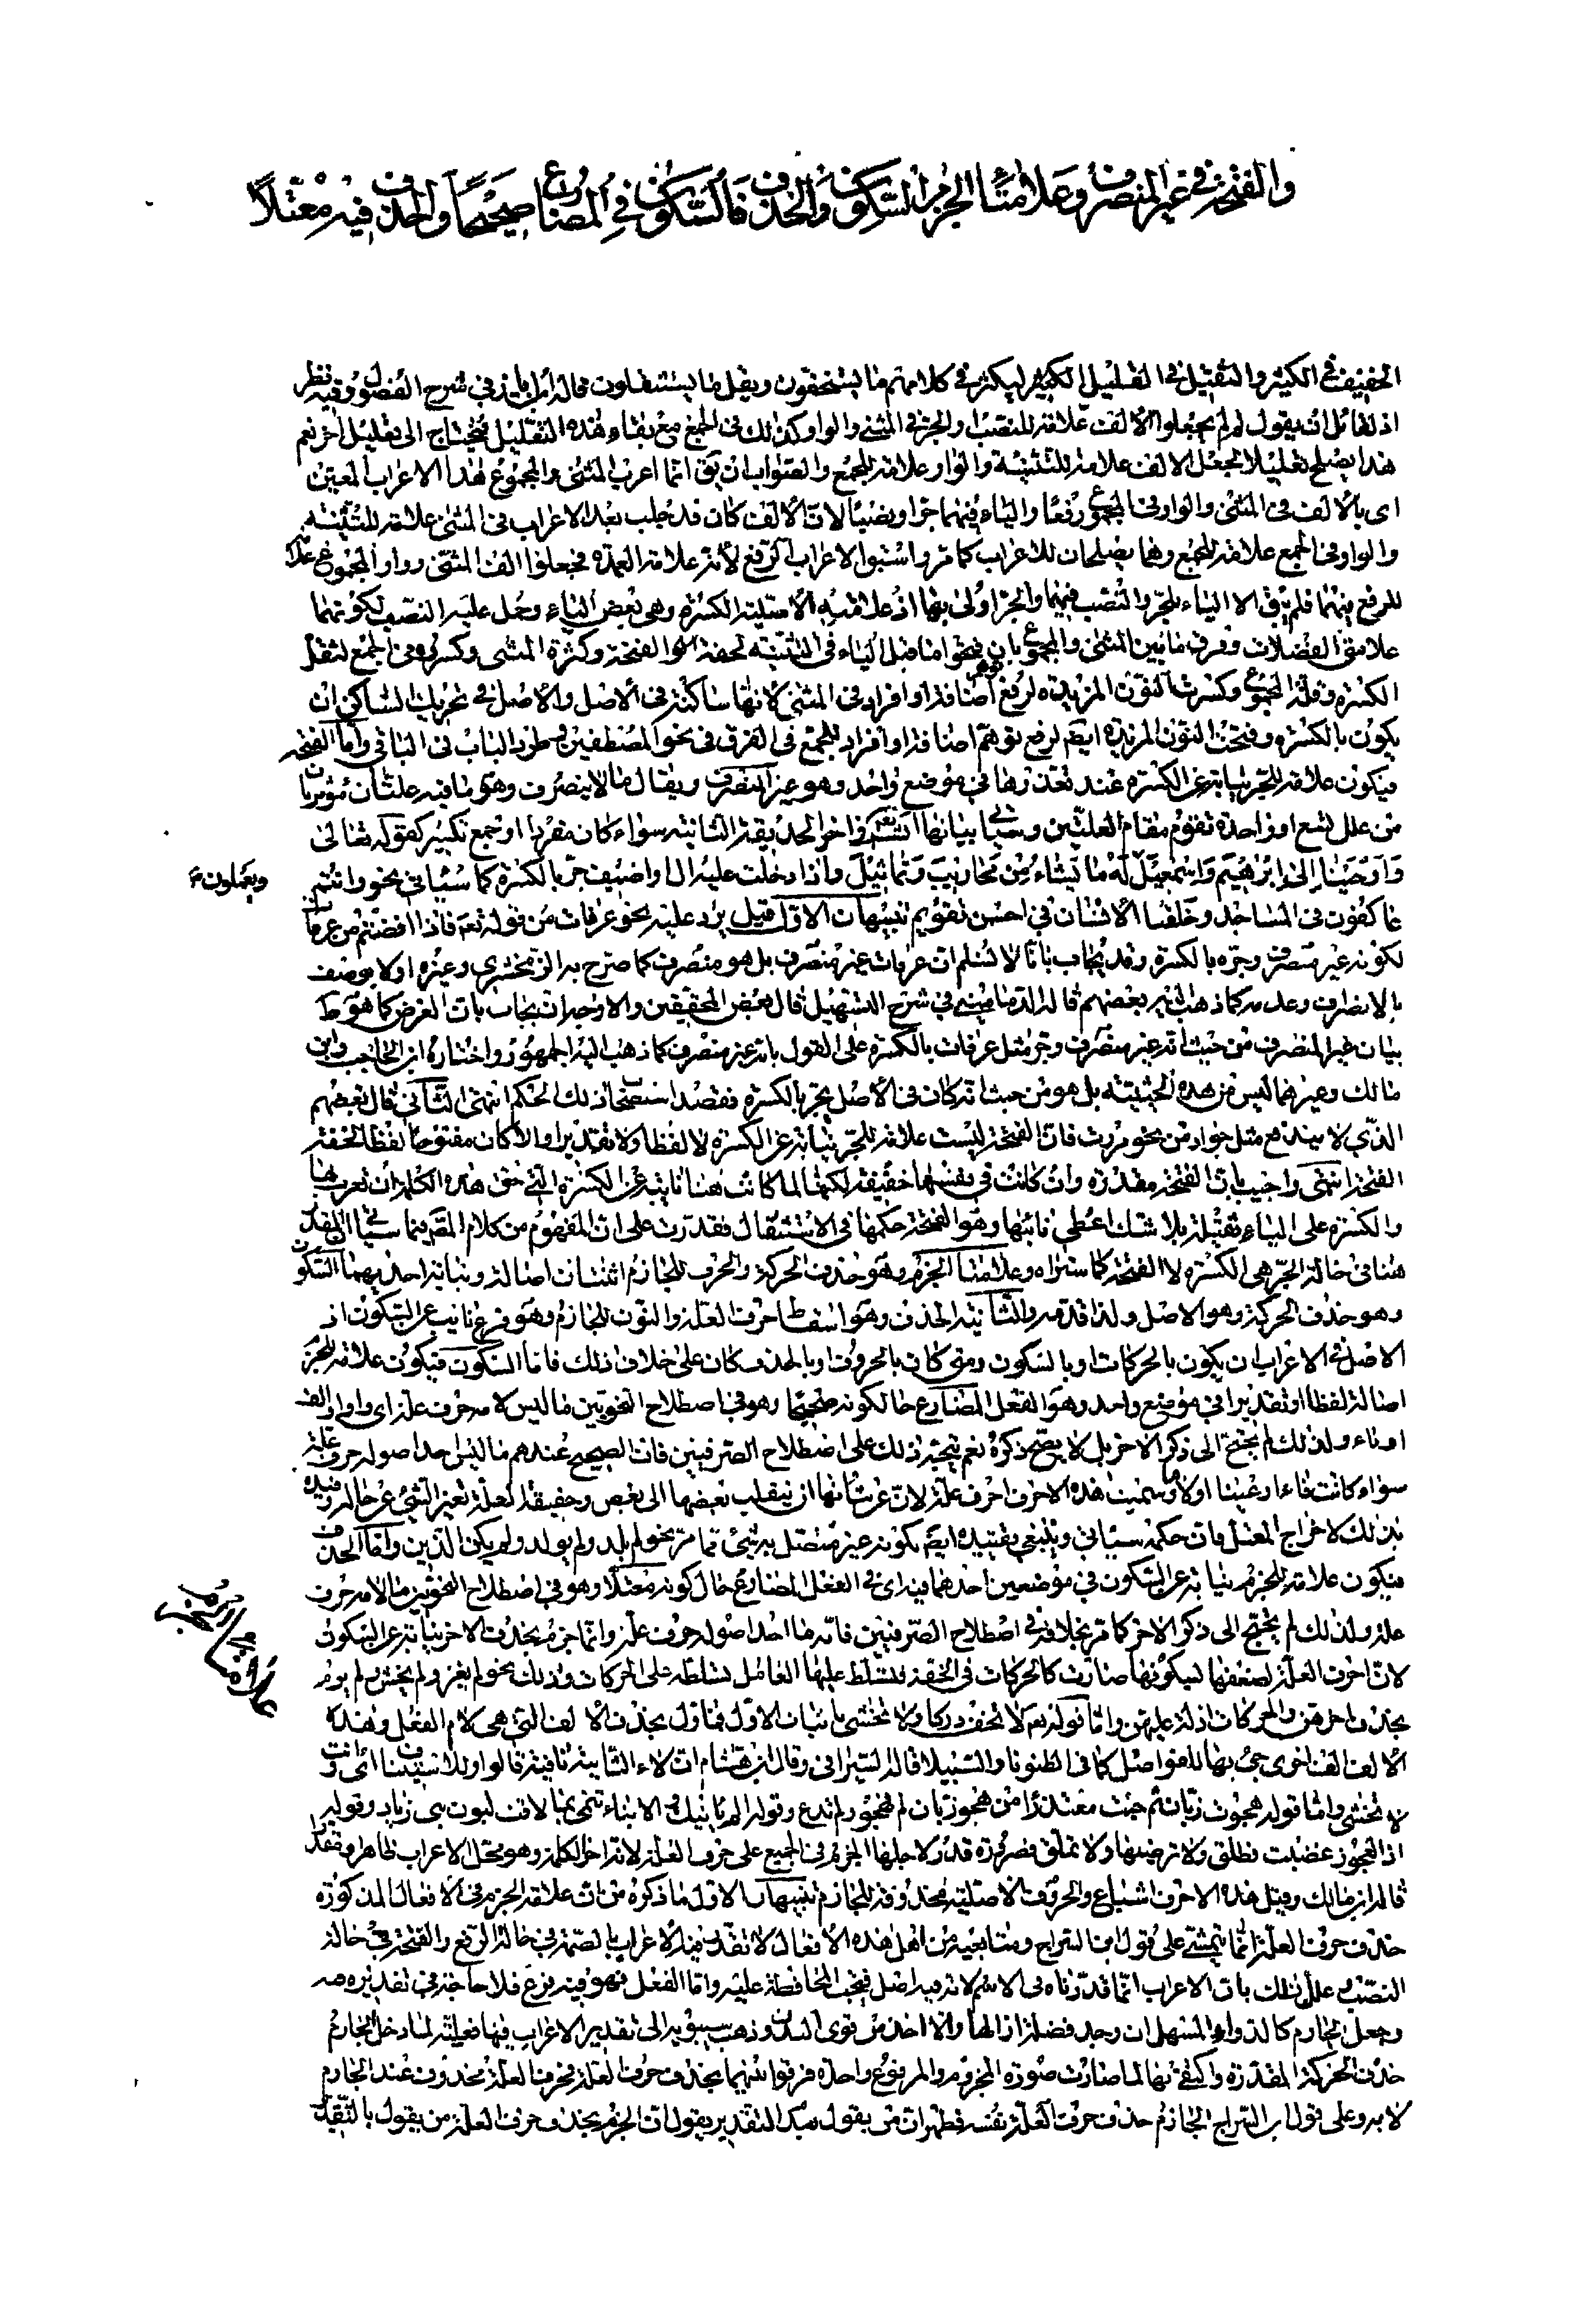 والفتحة في غير المنصرف وعلامتا الجزم السكون والحذف فالسكون في المضارع صحيحًا والحذف فيه معتلًا
الخفيف في الكثير والثقيل في القليل الكثير ليكثر في كلامهم ما يستخفون ويقل ما يستثقلون قاله ابن اياز في شرح الفصول وفيه نظر
اذ لقائل ان يقول لم لم يجعلوا الالف علامة للنصب والجر في المثنى والواو كذلك في الجمع مع بقاء هذه التقليل فيحتاج الى تعليل اخر نعم
هذا يصلح تعليلا لجعل الالف علامة للتثنية والواو علامة للجمع والصواب ان يق انما اعرب المثنى والمجموع هذا الاعراب المعين
اى بالالف فى المثنى والواو فى المجموع رفعًا والياء فيهما جرا ونصبًا لان الالف كان قد جلب بعد الاعراب فى المثنى علامة للتثنية
والواو فى الجمع علامة للجمع وهما يصلحان للاعراب كما مر واسبق الاعراب الرفع لانه علامة العمدة فجعلوا الف المثنى وواو المجموع علامة
للرفع فيهما فلم يبق الا الياء للجر والنصب فيهما والجر اولى بها اذ علامته الاصلية الكسرة وهى بعض الياء وحمل عليه النصب لكونهما
علامتى الفضلات وفرق ما بين المثنى والمجموع بان فتحوا ما قبل الياء فى التثنية لخفة الفتحة وكثرة المثنى وكسروه فى الجمع لثقل
الكسرة وقلة المجموع وكسرت النون المزيدة لرفع توهم اضافة او افراد فى المثنى لانها ساكنة فى الاصل والاصل فى تحريك الساكن ان
يكون بالكسرة وفتحت النون المزيدة ايضا لرفع توهم اضافة او افراد للجمع فى الفرق فى نحو المصطفين وطرد الباب فى الباقى واما الفتحة
فيكون علامة للجر نيابة عن الكسرة عند تعذرها في موضع واحد وهو غير المنصرف ويقال ما لا ينصرف وهو ما فيه علتان مؤثرتان
من علل تسع او واحدة تقوم مقام العلتين وسيأتى بيانها فى اخر الحديقة الثانية سواء كان مفردا او جمع تكسير كقوله تعالى
وَاَوْحَيْنَا اِلى اِبْرهِيمَ وَاِسْمعِيلَ لَهُ مَا يَشَاءُ مِنْ مَحَارِيبَ وَتَمَاثِيلَ واذا دخلت عليه ال او اضيف جر بالكسرة كما سيأتي نحو وانتم
ويعملون
عاكفون فى المساجد وخلقنا الانسان في احسن تقويم تنبيهات الاول قيل يرد عليه نحو عرفات من قوله تعم فاذا افضتم من عرفات
لكونه غير منصرف وجره بالكسرة وقد يجاب بانا لا نسلم ان عرفات غير منصرف بل هو منصرف كما صرح به الزمخشري وغيره او لا يوصف
بالانصراف وعدمه كما ذهب اليه بعضهم قاله الدمامينى في شرح التسهيل قال بعض المحققين والاوجه ان يجاب بان الغرض كما هو ظ
بيان غير المنصرف من حيث انه غير منصرف وجر مثل عرفات بالكسرة على القول بانه غير منصرف كما ذهب اليه الجمهور واختاره ابن الحاجب وابن
مالك وغيرهما ليس من هذه الحيثية بل هو من حيث انه كان فى الاصل يجر بالكسرة فقصد استصحاب ذلك الحكم انتهى الثانى قال بعضهم
الذى لا يندفع مثل جوار من نحو مررت فان الفتحة ليست علامة للجر نيابة عن الكسرة لا لفظا ولا تقديرا والا كان مفتوحا لفظا لخفة
الفتحة انتهى واجيب بان الفتحة مقدرة وان كانت في نفسها خفيفة لكنها لما كانت هنا نائبة عن الكسرة التي حق هذه الكلمة ان تعرب بها
والكسرة على الياء ثقيلة بلا شك اعطي نائبها وهو الفتحة حكمها في الاستثقال فقدرت على ان المفهوم من كلام المص فيما سيأتى ان المقدر
هنا فى حالة الجر هى الكسرة لا الفتحة كما ستراه وعلامتا الجزم وهو حذف الحركة والحرف للجازم اثنتان اصالة ونيابة احديهما السكون
وهو حذف الحركة وهو الاصل ولذا قدمه والثانية الحذف وهو اسقاط حرف العلة والنون للجازم وهو فرع نائب عن السكون اذ
الاصل في الاعراب ان يكون بالحركات او بالسكون ومتى كان بالحروف او بالحذف كان على خلاف ذلك فاما السكون فيكون علامة للجزم
اصالة لفظا او تقديرا في موضع واحد وهو الفعل المضارع حال كونه صحيحًا وهو في اصطلاح النحويين ما ليس لامه حرف علة اى واو او الف
او ياء ولذلك لم يحتج الى ذكر الاخر بل لا يصح ذكره نعم يتجه ذلك على اصطلاح الصرفيين فان الصحيح عندهم ما ليس احد اصوله حرف علة
سواء كانت فاء او عينا او لاما وسميت هذه الاحرف احرف علة لان من شانها ان ينقلب بعضها الى بعض وحقيقة العلة تغير الشئ عن حاله وقيده
بذلك لاخراج المعتل فان حكمه سيأتى وينبغي تقييده ايضا بكونه غير متصل به شئ مما مر نحو لم يلد ولم يولد ولم يكن الذين واما الحذف
فيكون علامة للجزم نيابة عن السكون في موضعين احدهما فيه اى في الفعل المضارع حال كونه معتلا وهو في اصطلاح النحويين ما لامه حرف
علة ولذلك لم يحتج الى ذكر الاخر كما مر بخلافه فى اصطلاح الصرفيين فانه ما احد اصوله حرف علة وانما جزم بحذف الاخر نيابة عن السكون
لان احرف العلة لضعفها لسكونها صارت كالحركات فى الخفة فتسلط عليها العامل تسلطه على الحركات وذلك نحو لم يغز ولم يخش ولم يرم
بحذف اخرهن والحركات ادلة عليهن واما قوله تعم لا تخف دركا ولا تخشى باثبات الاول فمأول بحذف الالف التي هى لام الفعل وهذه
الالف الف اخرى جئ بها للفواصل كما فى الظنونا والسبيلا قاله السيرافى وقال ابن هشام ان لا الثانية نافية قالوا وللاستيناف اى وانت
لا تخشى واما قوله هجوت زبان ثم جئت معتذرا من هجو زبان لم تهجو ولم تدع وقوله الم يأتيك والانباء تنمى بما لاقت لبون بنى زياد وقوله
اذا العجوز غضبت فطلق ولا ترضاها ولا تملق فضرورة قدر لاجلها الجزم فى الجميع على حرف العلة لانه اخر الكلمة وهو محل الاعراب ظاهرا ومقدرا
قاله ابن مالك وقيل هذه الاحرف اشباع والحروف الاصلية محذوفة للجازم تنبيهان الاول ما ذكره من ان علامة الجزم فى الافعال المذكورة
حذف حرف العلة انما يتمشى على قول ابن السراج ومتابعيه من ان هذه الافعال لا تقدر فيها الاعراب بالضمة في حالة الرفع والفتحة في حالة
النصب وعلل ذلك بان الاعراب انما قدرناه فى الاسم لانه فيه اصل فيجب المحافظة عليه واما الفعل فهو فيه فرع فلا حاجة فى تقديره فيه
وجعل الجازم كالدواء المسهل ان وجد فضلة ازالها والا اخذ من قوى البدن وذهب سيبويه الى تقدير الاعراب فيها فعليه لما دخل الجازم
حذف الحركة المقدرة واكتفى بها ثم لما صارت صورة المجزوم والمرفوع واحدة فرقوا بينهما بحذف حرف العلة فحرف العلة محذوف عند الجازم
لا به وعلى قول ابن السراج الجازم حذف حرف العلة نفسه فظهر ان من يقول بعدم التقدير يقول ان الجزم بحذف حرف العلة ومن يقول بالتقدير